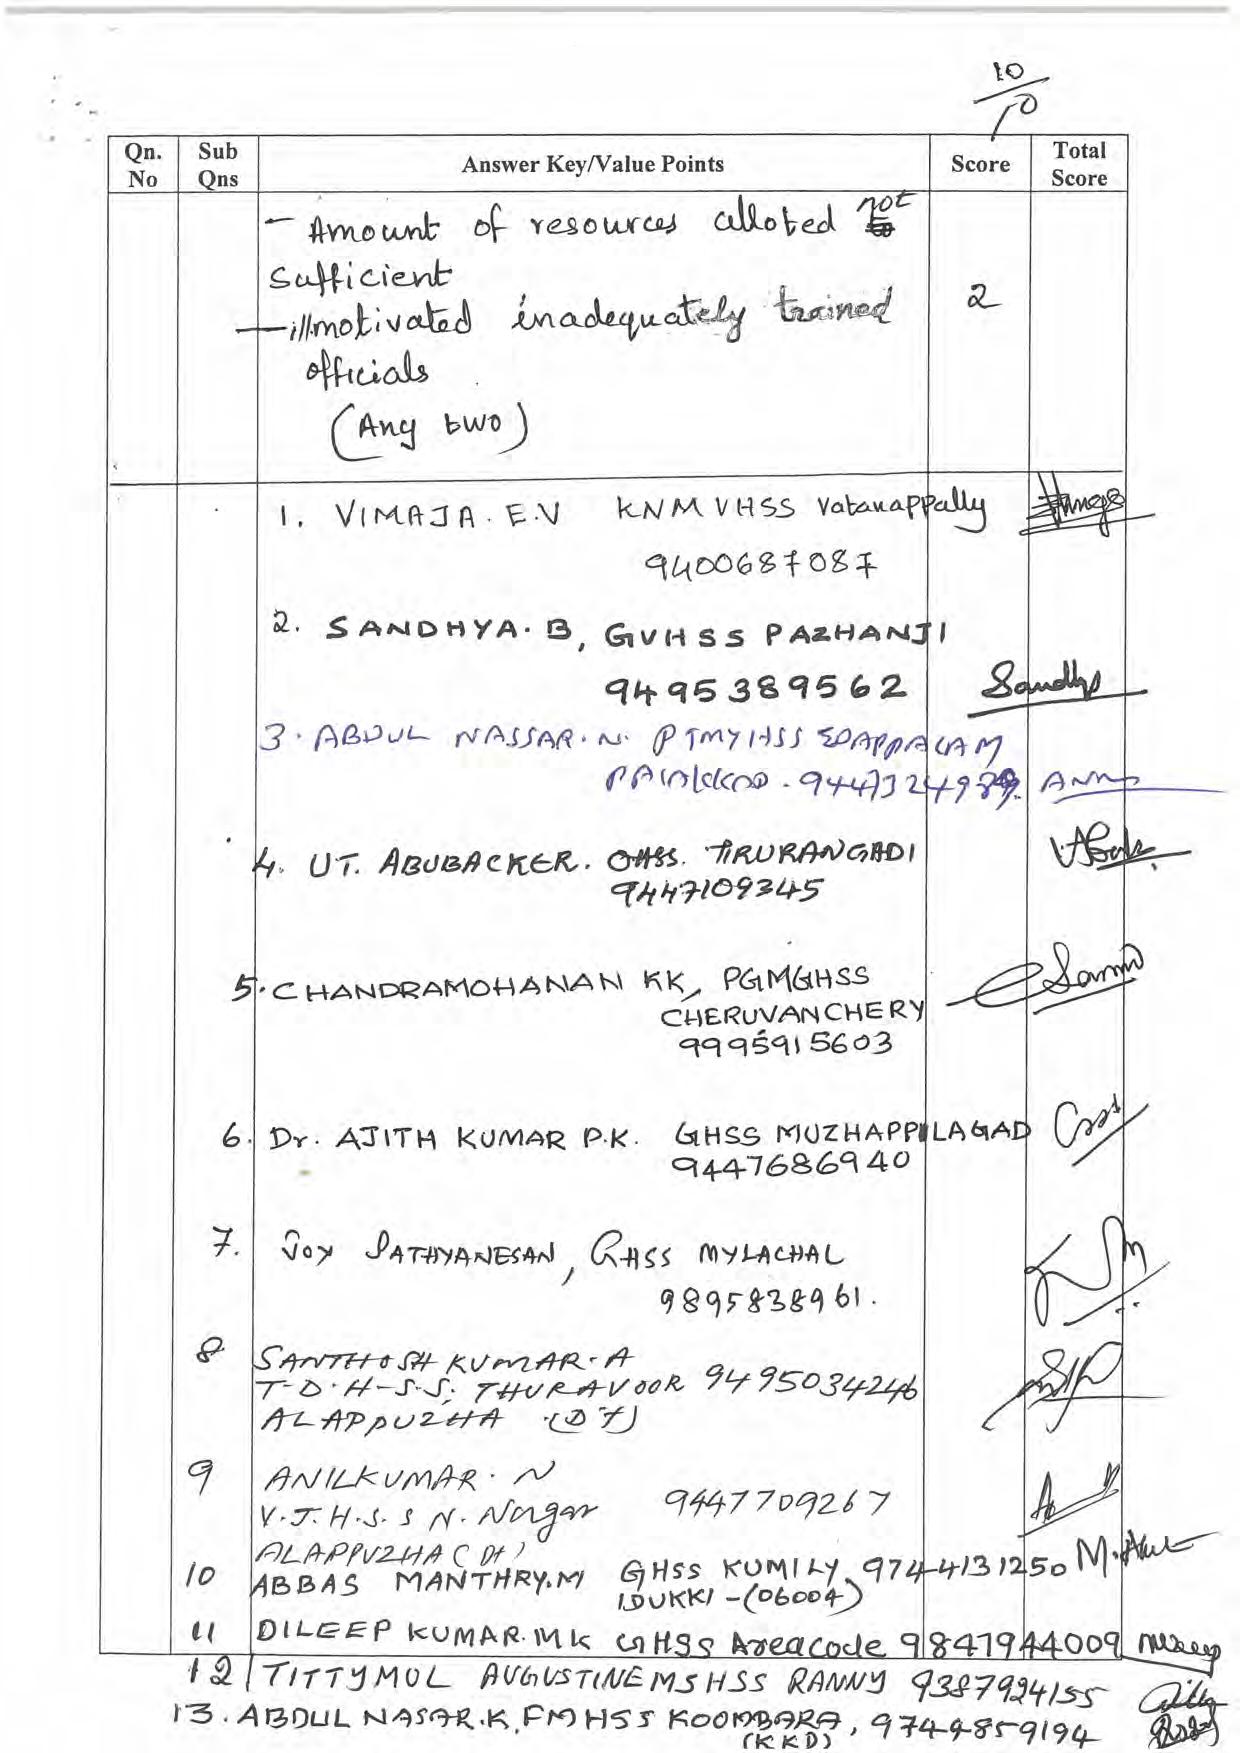 10
10
Qn. No Sub Qns Answer Key/Value Points Score Total Score
- Amount of resources alloted not
sufficient
2
- illmotivated inadequately trained
officials
(Any two)
1. VIMAJA. E.V KNMVHSS Vatanappally
9400687087
2. SANDHYA. B, GVHSS PAZHANJI
9495389562 Sandhya
3. ABDUL NASSAR. N. PTMYHSS EDAPPALAM
PALAKKAD.
4. UT. ABUBACKER. OHSS. TIRURANGADI
9447109345
5. CHANDRAMOHANAN KK, PGMGHSS
CHERUVANCHERY
9995915603
6. Dr. AJITH KUMAR P.K. GHSS MUZHAPPILAGAD
9447686940
7. JOY SATHYANESAN, GHSS MYLACHAL
9895838961.
8 SANTHOSH KUMAR. A
T-D-H-S-S; THURAVOOR 9495034246
ALAPPUZHA (Dt)
9 ANILKUMAR. N
V.J.H.S.S N. Nagar 9447709267
ALAPPUZHA (Dt)
10 ABBAS MANTHRY.M GHSS KUMILY, 9744131250
IDUKKI -(06004)
11 DILEEP KUMAR. M.K GHSS Areacode 9847944009
12 TITTYMOL AUGUSTINE MSHSS RANNY 9387924155
13. ABDUL NASAR.K, FMHSS KOOMBARA, 9744859194
(KKD)